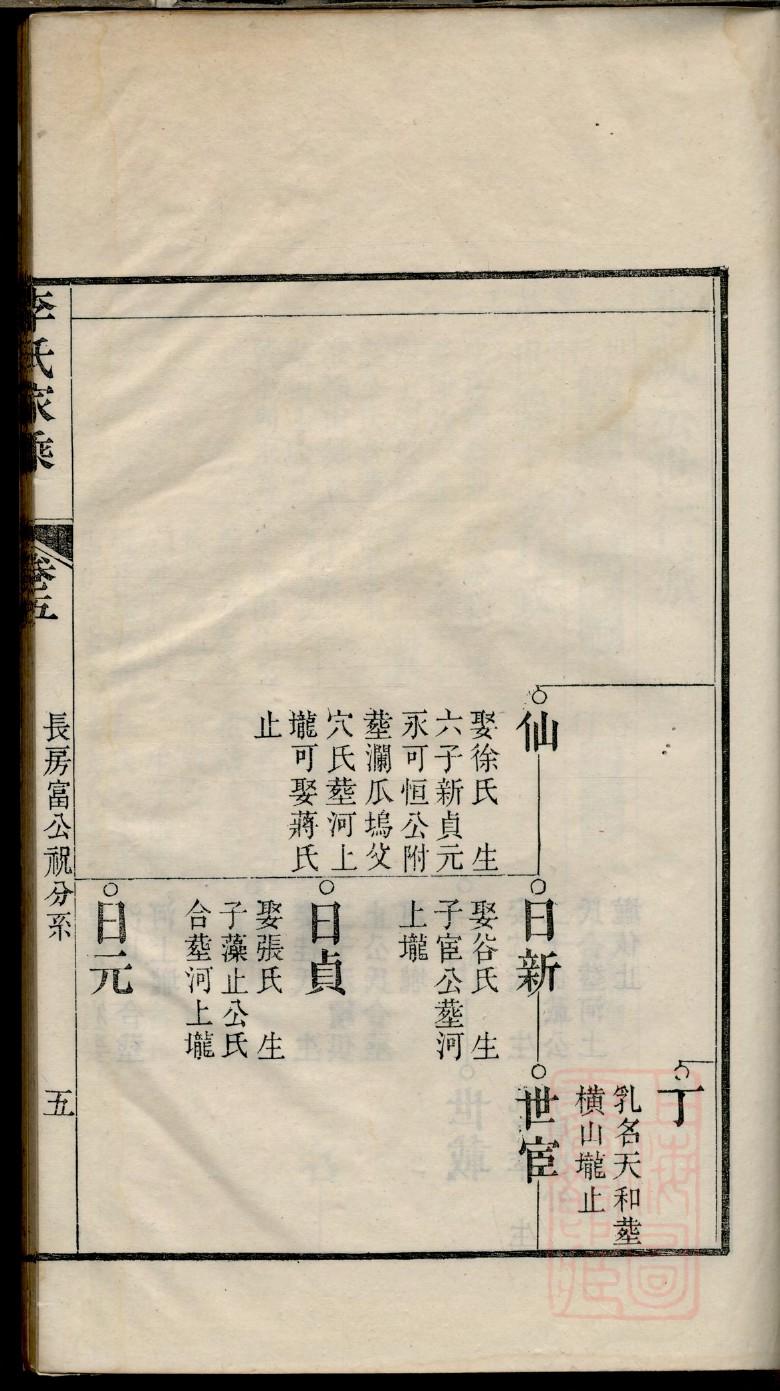 丁
乳名天和塟
橫山壠止
仙
娶徐氏　生
六子新貞元
永可恒公附
塟瀾瓜塢父
穴氏塟河上
壠可娶蔣氏
止
日新
娶谷氏　生
子宦公塟河
上壠
世宦
日貞
娶張氏　生
子藻止公氏
合塟河上壠
日元
李氏家乘
卷五
長房富公祝分系
五